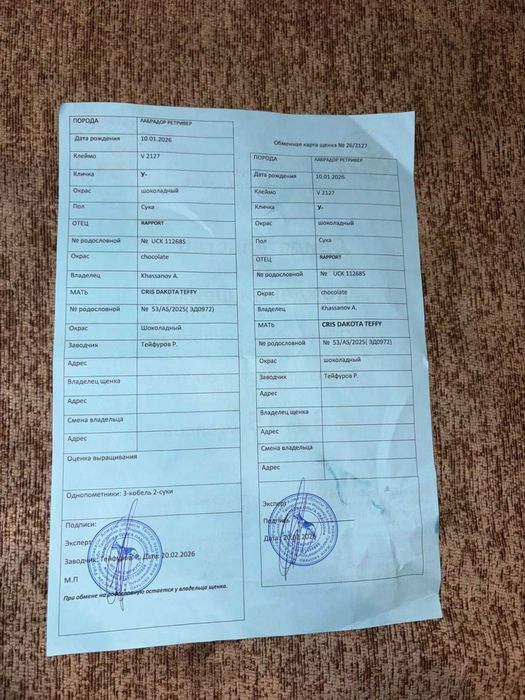 ПОРОДА ЛАБРАДОР РЕТРИВЕР
Дата рождения 10.01.2026
Клеймо V 2127
Кличка У-
Окрас шоколадный
Пол Сука
ОТЕЦ RAPPORT
№ родословной № UCK 112685
Окрас chocolate
Владелец Khassanov A.
МАТЬ CRIS DAKOTA TEFFY
№ родословной № 53/AS/2025( ЭД0972)
Окрас Шоколадный
Заводчик Тейфуров Р.
Адрес
Владелец щенка
Адрес
Смена владельца
Адрес
Оценка выращивания
Однопометники: 3-кобель 2-суки
Подписи:
Эксперт
Заводчик: Тейфуров Р. Дата: 20.02.2026
М.П
При обмене на родословную остается у владельца щенка.
Обменная карта щенка № 26/2127
ПОРОДА ЛАБРАДОР РЕТРИВЕР
Дата рождения 10.01.2026
Клеймо V 2127
Кличка У-
Окрас шоколадный
Пол Сука
ОТЕЦ RAPPORT
№ родословной № UCK 112685
Окрас chocolate
Владелец Khassanov A.
МАТЬ CRIS DAKOTA TEFFY
№ родословной № 53/AS/2025( ЭД0972)
Окрас шоколадный
Заводчик Тейфуров Р.
Адрес
Владелец щенка
Адрес
Смена владельца
Адрес
Эксперт
Подпись
Дата: 20.02.2026